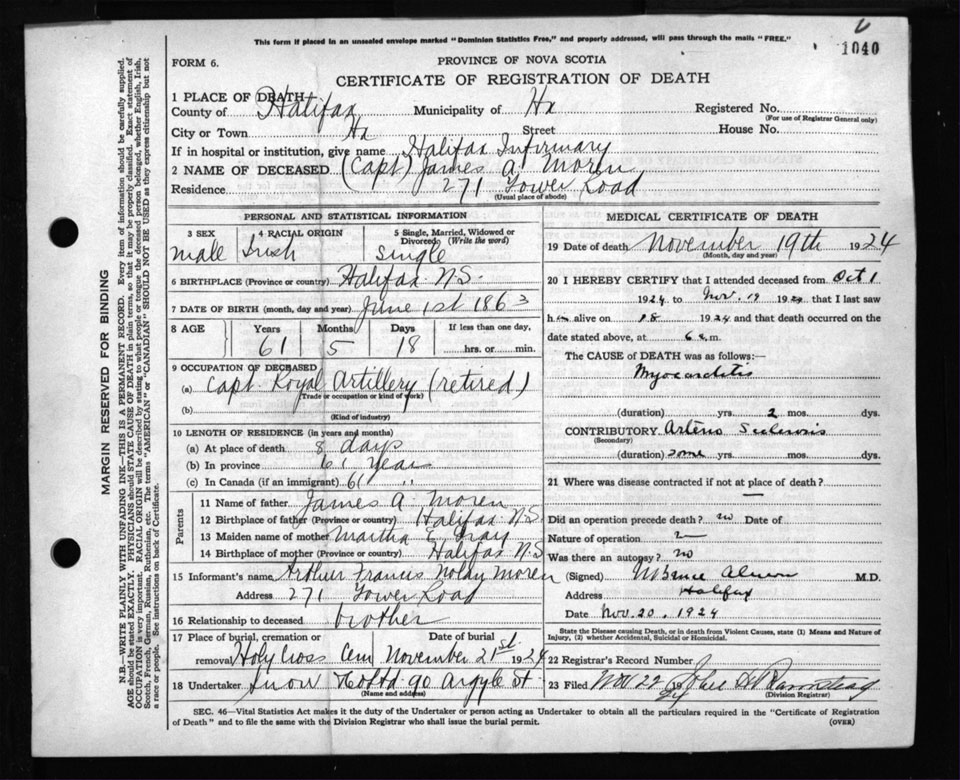 This form if placed in an unsealed envelope marked "Dominion Statistics Free," and property addressed, will pass through the mails "FREE."
1040
FORM 6.
PROVINCE OF NOVA SCOTIA
CERTIFICATE OF REGISTRATION OF DEATH
1 PLACE OF DEATH
County of Halifax Municipality of Hx Registered No.
(For use of Registrar General only)
City or Town Hx Street House No.
If in hospital or institution, give name Halifax Infirmary
2 NAME OF DECEASED (Capt) James A. Moren
Residence 271 Tower Road
(Usual place of abode)
PERSONAL AND STATISTICAL INFORMATION
3 SEX 4 RACIAL ORIGIN 5 Single, Married, Widowed or Divorced (Write the word)
male Irish Single
6 BIRTHPLACE (Province or country) Halifax N.S.
7 DATE OF BIRTH (month, day and year) June 1st 1863
8 AGE Years Months Days If less than one day,
61 5 18 hrs. or min.
9 OCCUPATION OF DECEASED
(a) Capt Royal Artillery (retired)
(Trade or occupation or kind of work)
(b)
(Kind of industry)
10 LENGTH OF RESIDENCE (in years and months)
(a) At place of death 8 days
(b) In province 61 Year
(c) In Canada (if an immigrant) 61 "
Parents
11 Name of father James A. Moren
12 Birthplace of father (Province or country) Halifax N.S.
13 Maiden name of mother Martha E.
14 Birthplace of mother (Province or country) Halifax N.S
15 Informant's name Arthur Francis Moren
Address 271 Tower Road
16 Relationship to deceased brother
17 Place of burial, cremation or removal Date of burial
Holy Cross Cem November 21st 1924
18 Undertaker Snow & Co Ltd 90 Argyle St
(Name and address)
MEDICAL CERTIFICATE OF DEATH
19 Date of death November 19th 1924
(Month, day and year)
20 I HEREBY CERTIFY that I attended deceased from Oct 1
1924 to Nov. 19 1924 that I last saw
him alive on 18 1924 and that death occurred on the
date stated above, at 6 a.m.
The CAUSE OF DEATH was as follows:
Myocarditis
(duration) yrs. 2 mos. dys.
CONTRIBUTORY Arterio Sclerosis
(Secondary)
(duration) some yrs. mos. dys.
21 Where was disease contracted if not at place of death?
—
Did an operation precede death? no Date of
Nature of operation
Was there an autopsy? no
(Signed) M.D.
Address Halifax
Date Nov. 20. 1924
State the Disease causing Death, or in death from Violent Causes, state (1) Means and Nature of Injury, (2) whether Accidental, Suicidal or Homicidal.
22 Registrar's Record Number
23 Filed Nov 22 19
(Division Registrar)
SEC. 46—Vital Statistics Act makes it the duty of the Undertaker or person acting as Undertaker to obtain all the particulars required in the "Certificate of Registration
of Death" and to file the same with the Division Registrar who shall issue the burial permit. (OVER)
MARGIN RESERVED FOR BINDING
N.B.—WRITE PLAINLY WITH UNFADING INK—THIS IS A PERMANENT RECORD. Every item of information should be carefully supplied.
AGE should be stated EXACTLY. PHYSICIANS should STATE CAUSE OF DEATH in plain terms, so that it may be properly classified. Exact statement of
OCCUPATION is very important. RACIAL ORIGIN will be described by stating to what people or tongue the deceased person belonged, whether English, Irish,
Scotch, French, German, Russian, Ruthenian, etc. The terms "AMERICAN" or "CANADIAN" SHOULD NOT BE USED as they express citizenship but not
a race or people. See instructions on back of Certificate.